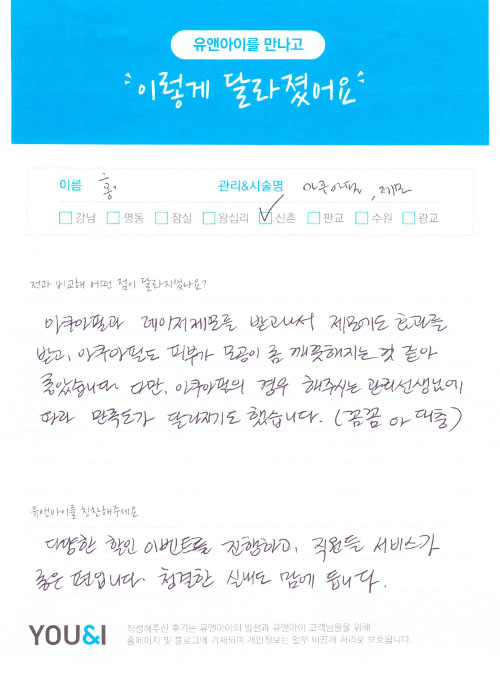 유앤아이를 만나고
이렇게 달라졌어요
이름 홍 관리&시술명 아쿠아필, 제모
강남 명동 잠실 왕십리 신촌 판교 수원 광교
전과 비교해 어떤 점이 달라지셨나요?
아쿠아필과 레이저제모를 받고나서 제모에도 효과를
받고, 아쿠아필도 피부가 모공이 좀 깨끗해지는 것 같아
좋았습니다. 다만, 아쿠아필의 경우 해주시는 관리선생님에
따라 만족도가 달라지기도 했습니다. (꼼꼼 or 대충)
유앤아이를 칭찬해주세요
다양한 할인 이벤트를 진행하고, 직원들 서비스가
좋은 편입니다. 청결한 실내도 맘에 듭니다.
YOU&I 작성해주신 후기는 유앤아이의 발전과 유앤아이 고객님들을 위해
홈페이지 및 블로그에 기재되며 개인정보는 일부 비공개 처리로 보호됩니다.